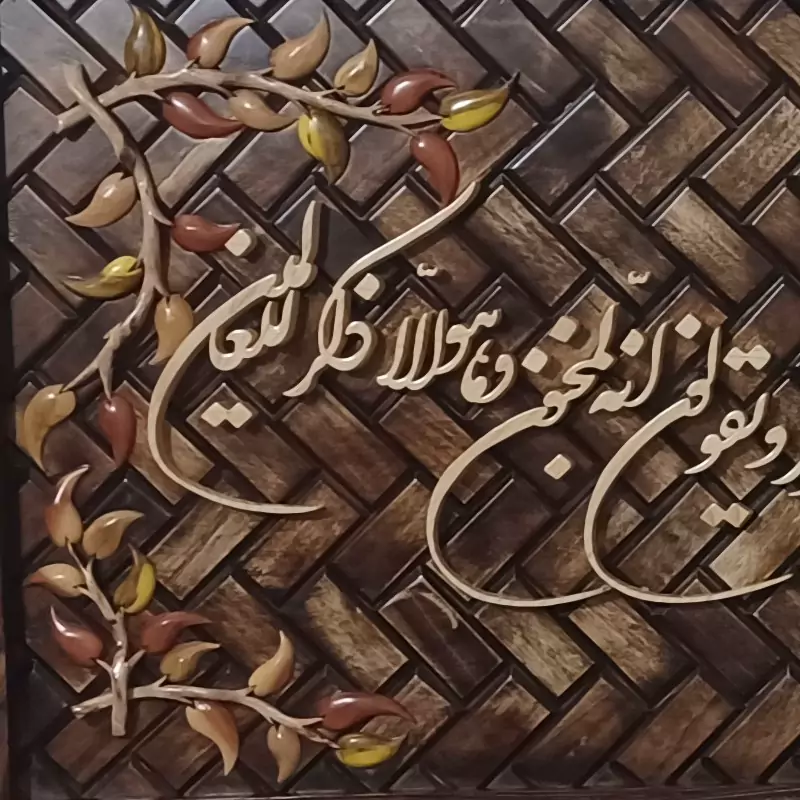 ويقولون إنّه لمجنون وما هو إلّا ذكر للعالمين